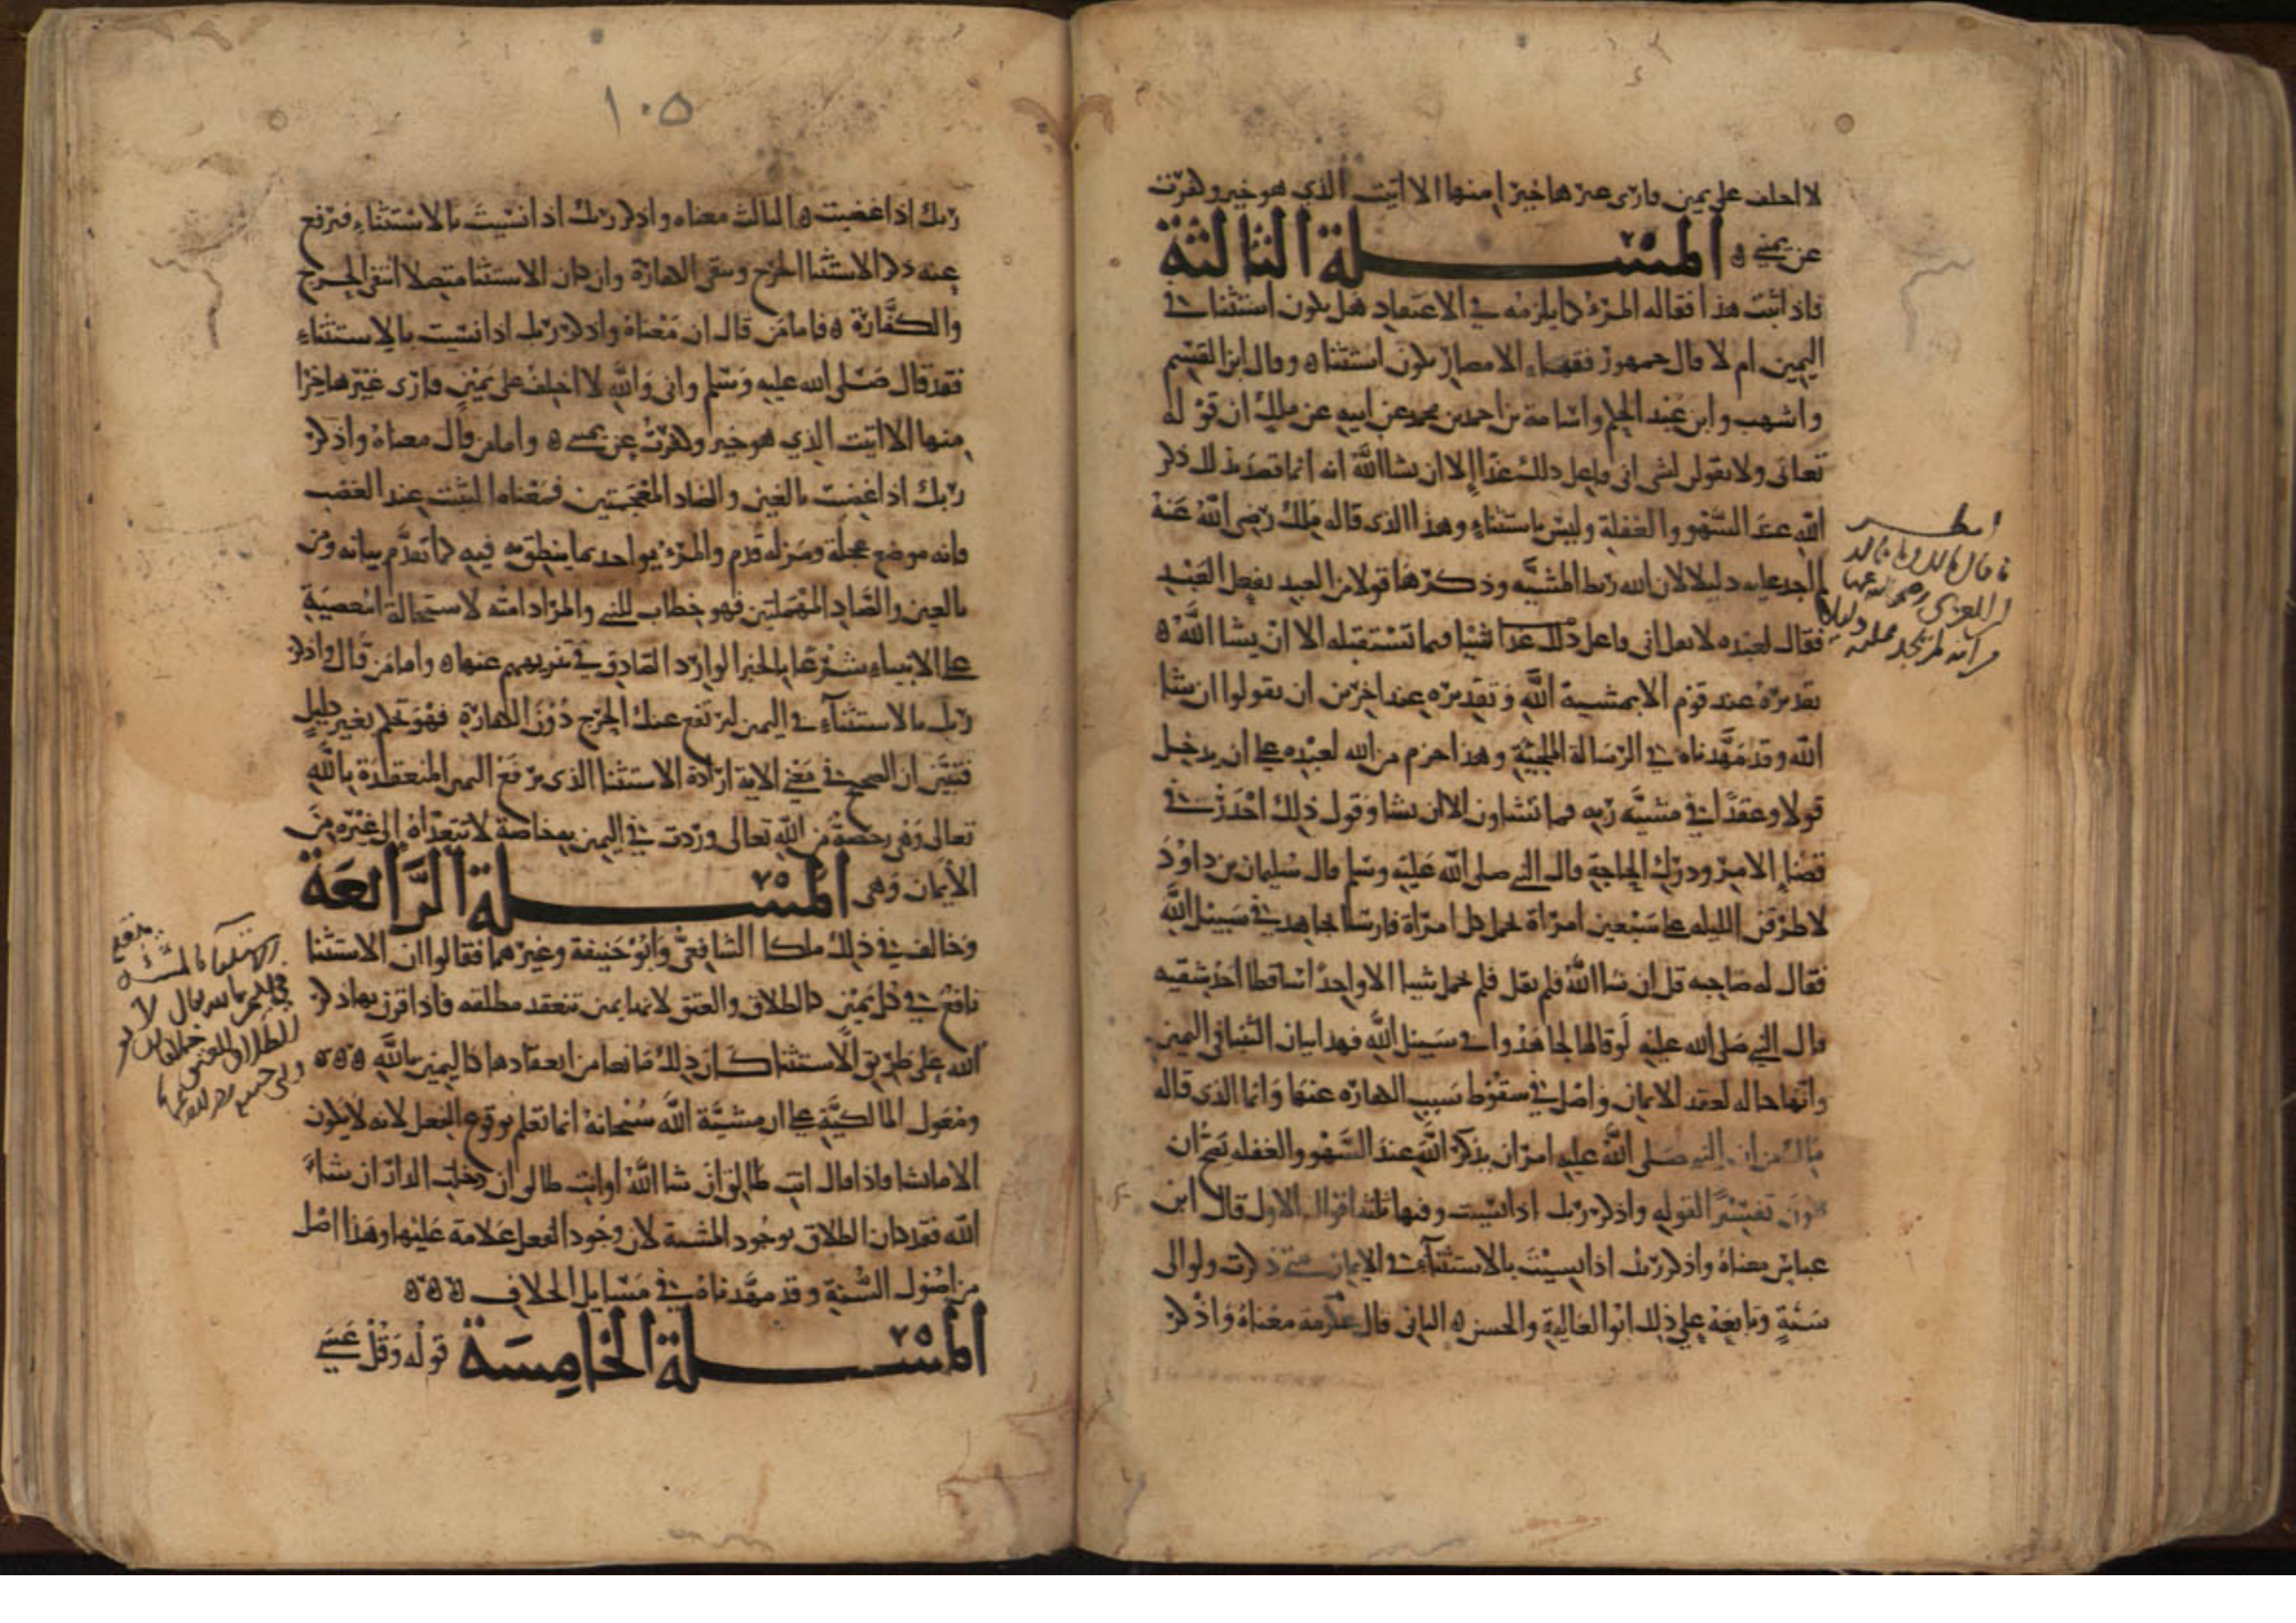 لا احلف على يمين فارى غيرها خيرا منها الا اتيت الذي هو خير وكفرت
عن يميني ه المسئلة الثالثة
فاذا ثبت هذا فقاله المرء كما يلزمه في الاعتقاد هل يكون استثنا في
اليمين ام لا قال جمهور فقهاء الامصار يكون استثنا ه وقال ابن القسم
واشهب وابن عبد الحكم واسامة بن احمد بن محمد عن ابيه عن ملك ان قوله
تعالى ولا تقولن لشي اني فاعل ذلك غدا الا ان يشا الله انه انما قصد بذلك ذكر
الله عند السهو والغفلة وليس باستثناء وهذا الذي قاله ملك رضي الله عنه
لم اجد عليه دليلا لان الله ربط المشيه وذكرها قولا من العبد بفعل العبد
فقال لعبده لا تقل اني فاعل ذلك غدا شيا فيما تستقبله الا ان يشا الله ه
تقديره عند قوم الا بمشيه الله وتقديره عند اخرين ان تقولوا ان شا
الله وقد مهدناه في الرسالة الملجئة وهذا حزم من الله لعبده على ان يدخل
قولا وعقدا في مشيه ربه فما تشاون الا ان يشا وقول ذلك احدر في
قضا الامر ودرك الحاجة قال النبي صلى الله عليه وسلم قال سليمان بن داود
لاطوفن الليله على سبعين امراة تحمل كل امراة فارسا يجاهد في سبيل الله
فقال له صاحبه قل ان شا الله فلم يقل فلم تحمل شيا الا واحدا ساقطا احد شقيه
قال النبي صلى الله عليه لو قالها لجاهدوا في سبيل الله فهذا بيان الثنيا في اليمين
وانها حاله لعقد الايمان واصل في سقوط سبب الكفاره عنها وانما الذي قاله
مالك من ان النبي صلى الله عليه امر ان يذكر الله عند السهو والغفله يصح ان
يكون تفسيرا لقوله واذكر ربك اذا نسيت وفيها ثلثه اقوال الاول قال ابن
عباس معناه واذكر ربك اذا نسيت بالاستثناء في الايمان متى ذكرت ولو الى
سنة وتابعه على ذلك ابو العالية والحسن ه الثاني قال عكرمة معناه واذكر
انظر
١٠٥
ربك اذا غضبت ه الثالث معناه واذكر ربك اذا نسيت بالاستثناء فيرفع
عنه ذكر الاستثنا الحرج وتبقى الكفارة وان كان الاستثنا متصلا انتفى الحرج
والكفارة ه فاما من قال ان معناه واذكر ربك اذا نسيت بالاستثناء
فقد قال صلى الله عليه وسلم واني والله لا احلف على يمين فارى غيرها خيرا
منها الا اتيت الذي هو خير وكفرت عن يميني ه واما من قال معناه واذكر
ربك اذا غضبت بالغين والضاد المعجمتين فمعناه التثبت عند الغضب
فانه موضع عجلة ومزله قدم والمرء يواخد بما ينطق به فيه كما تقدم بيانه ومن
بالعين والصاد المهملتين فهو خطاب للنبي والمراد امته لاستحالة المعصية
على الانبياء شرعا بالخبر الوارد الصادق في تنزيههم عنها ه واما من قال واذكر
ربك بالاستثناء في اليمين ليرتفع عنك الحرج دون الكفارة فهو تحكم بغير دليل
فتبين ان الصحيح في معنى الاية ارادة الاستثنا الذي يرفع اليمين المنعقدة بالله
تعالى وهي رخصة من الله تعالى وردت في اليمين به خاصة لا تتعداه الى غيره من
الايمان وهي المسئلة الرابعة
وخالف في ذلك ملكا الشافعي وابو حنيفة وغيرهما فقالوا ان الاستثنا
نافع في كل يمين كالطلاق والعتق لانها يمين تنعقد مطلقه فاذا قرن بها ذكر
الله على طريق الاستثنا كان ذلك مانعا من انعقادها كاليمين بالله ه ه ه
ومعول المالكية على ان مشية الله سبحانه انما تعلم بوقوع الفعل لانه لا يكون
الا ما يشا فاذا قال انت طالق ان شا الله او انت طالق ان دخلت الدار ان شاء
الله فقد كان الطلاق بوجود المشيه لان وجود الفعل علامة عليها وهذا اصل
من اصول السنة وقد مهدناه في مسايل الخلاف ه ه ه
المسئلة الخامسة قوله وقل عسى